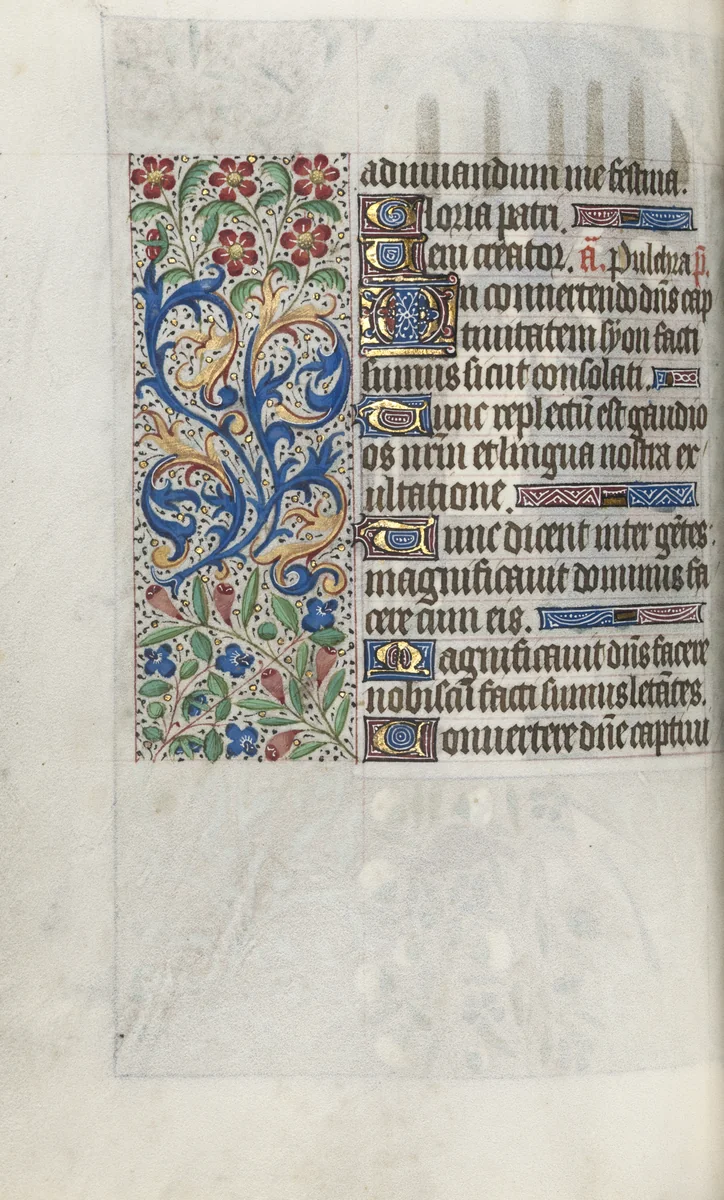 adiuuandum me festina.
Gloria patri.
Veni creator. ã. Pulchra p̄.
In conuertendo dn̄s cap
tiuitatem syon facti
sumus sicut consolati.
Tunc repletū est gaudio
os nr̄m et lingua nostra ex
ultatione.
Tunc dicent inter gētes:
magnificauit dominus fa
cere cum eis.
Magnificauit dn̄s facere
nobiscū facti sumus letātes.
Conuertere dn̄e captiui